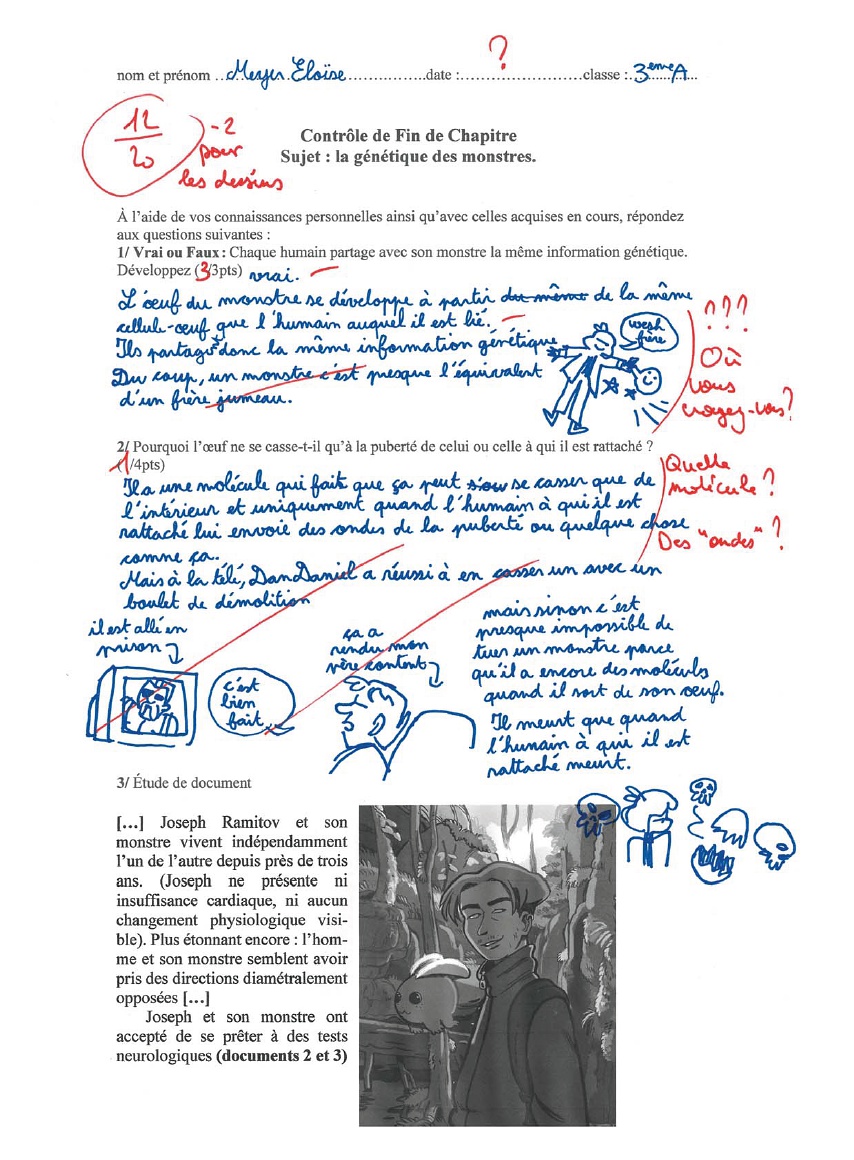 ?
nom et prénom ... Meyer Eloïse ................date :..........................classe :. 3emeA ...
12/20
-2 pour les dessins
Contrôle de Fin de Chapitre
Sujet : la génétique des monstres.
À l'aide de vos connaissances personnelles ainsi qu'avec celles acquises en cours, répondez
aux questions suivantes :
1/ Vrai ou Faux : Chaque humain partage avec son monstre la même information génétique.
Développez (3/3pts) vrai.
L'œuf du monstre se développe à partir du même de la même
cellule-œuf que l'humain auquel il est lié.
Ils partagent donc la même information génétique
Du coup, un monstre c'est presque l'équivalent
d'un frère jumeau.
wesh
frère
???
Où
vous
croyez-vous?
2/ Pourquoi l'œuf ne se casse-t-il qu'à la puberté de celui ou celle à qui il est rattaché ?
(1/4pts)
Il a une molécule qui fait que ça peut se casser que de
l'intérieur et uniquement quand l'humain à qui il est
rattaché lui envoie des ondes de la puberté ou quelque chose
comme ça.
Quelle
molécule ?
Des "ondes" ?
Mais à la télé, DanDaniel a réussi à en casser un avec un
boulet de démolition
il est allé en
prison
c'est
bien
fait
ça a
rendu mon
père content
mais sinon c'est
presque impossible de
tuer un monstre parce
qu'il a encore des moléculs
quand il sort de son œuf.
Il meurt que quand
l'humain à qui il est
rattaché meurt.
3/ Étude de document
[...] Joseph Ramitov et son
monstre vivent indépendamment
l'un de l'autre depuis près de trois
ans. (Joseph ne présente ni
insuffisance cardiaque, ni aucun
changement physiologique visi-
ble). Plus étonnant encore : l'hom-
me et son monstre semblent avoir
pris des directions diamétralement
opposées [...]
Joseph et son monstre ont
accepté de se prêter à des tests
neurologiques (documents 2 et 3)